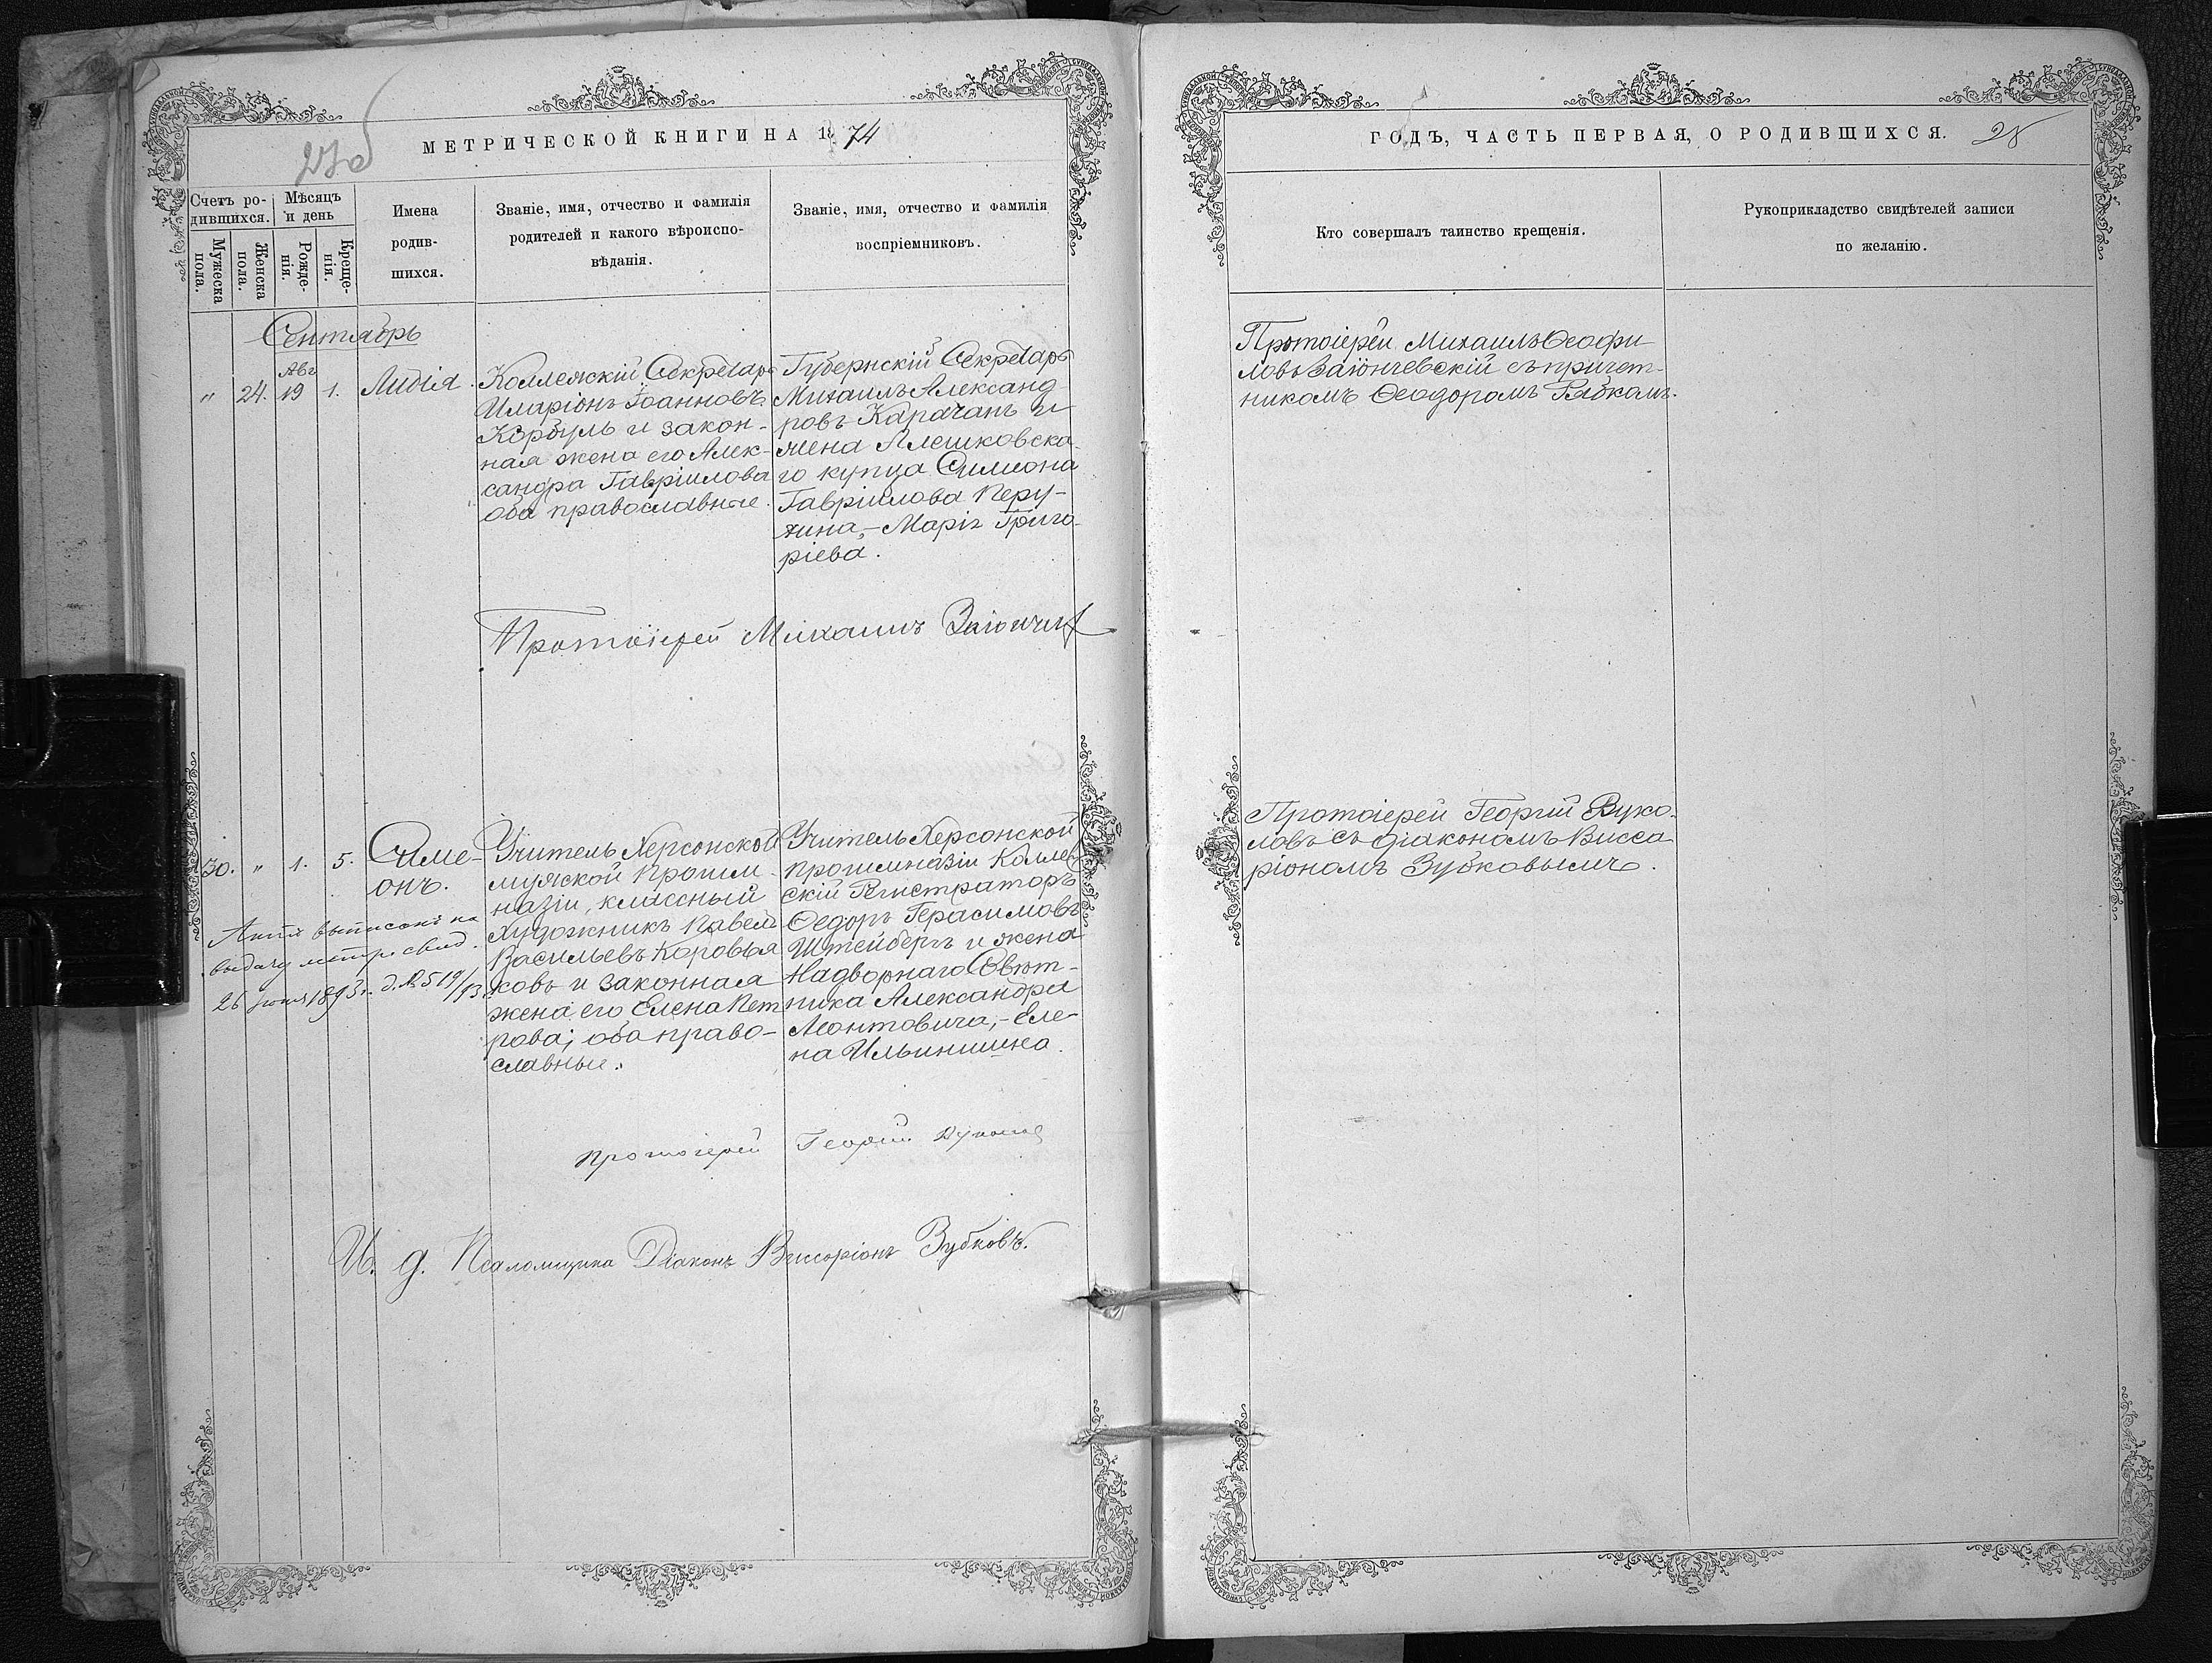 МЕТРИЧЕСКОЙ КНИГИ НА 1874
Счетъ ро-
дившихся.
Мѣсяцъ
и день
Мужеска
пола.
Женска
пола.
Рожде-
нія.
Креще-
нія.
Имена
родив-
шихся.
Званіе, имя, отчество и фамилія
родителей и какого вѣроиспо-
вѣданія.
Званіе, имя, отчество и фамилія
воспріемниковъ.
Сентябрь
Авг
" 24. 19 1. Лидія.
Коллежскій Секретарь
Иларіонъ Іоанновъ
Корбуль и закон-
ная жена его Алек-
сандра Гавріилова
оба православные.
Губернскій Секретарь
Михаилъ Александ-
ровъ Карачанъ и
жена Алешковска-
го купца Симеона
Гавріилова Перу-
жина,- Марія Григо-
ріева.
Протоіерей Михаилъ
30. " 1. 5. Симе-
онъ.
выписанъ на
выдачу метр. свид.
26 1893 г. д. № 519/93
Учитель Херсонской
мужской Прогим-
назіи, классный
художникъ Павелъ
Васильевъ Коровья-
ковъ и законная
жена его Елена Пет-
рова; оба право-
славные.
Учитель Херсонской
прогимназіи Колле
скій Регистраторъ
Ѳедоръ Герасимовъ
Штейберъ и жена
Надворнаго Совѣт-
ника Александра
Леонтовича,- Еле-
на Ильинишна.
протоіерей Георгій Вуколов
И. д. Псаломщика Діаконъ Виссаріонъ Зубковъ.
ГОДЪ, ЧАСТЬ ПЕРВАЯ, О РОДИВШИХСЯ. 28
Кто совершалъ таинство крещенія.
Рукоприкладство свидѣтелей записи
по желанію.
Протоіерей Михаилъ Ѳеофи-
ловъ Заіончевскій съ причет-
никомъ Ѳеодоромъ Рябкомъ.
Протоіерей Георгій Вуко-
ловъ съ діакономъ Висса-
ріономъ Зубковымъ.